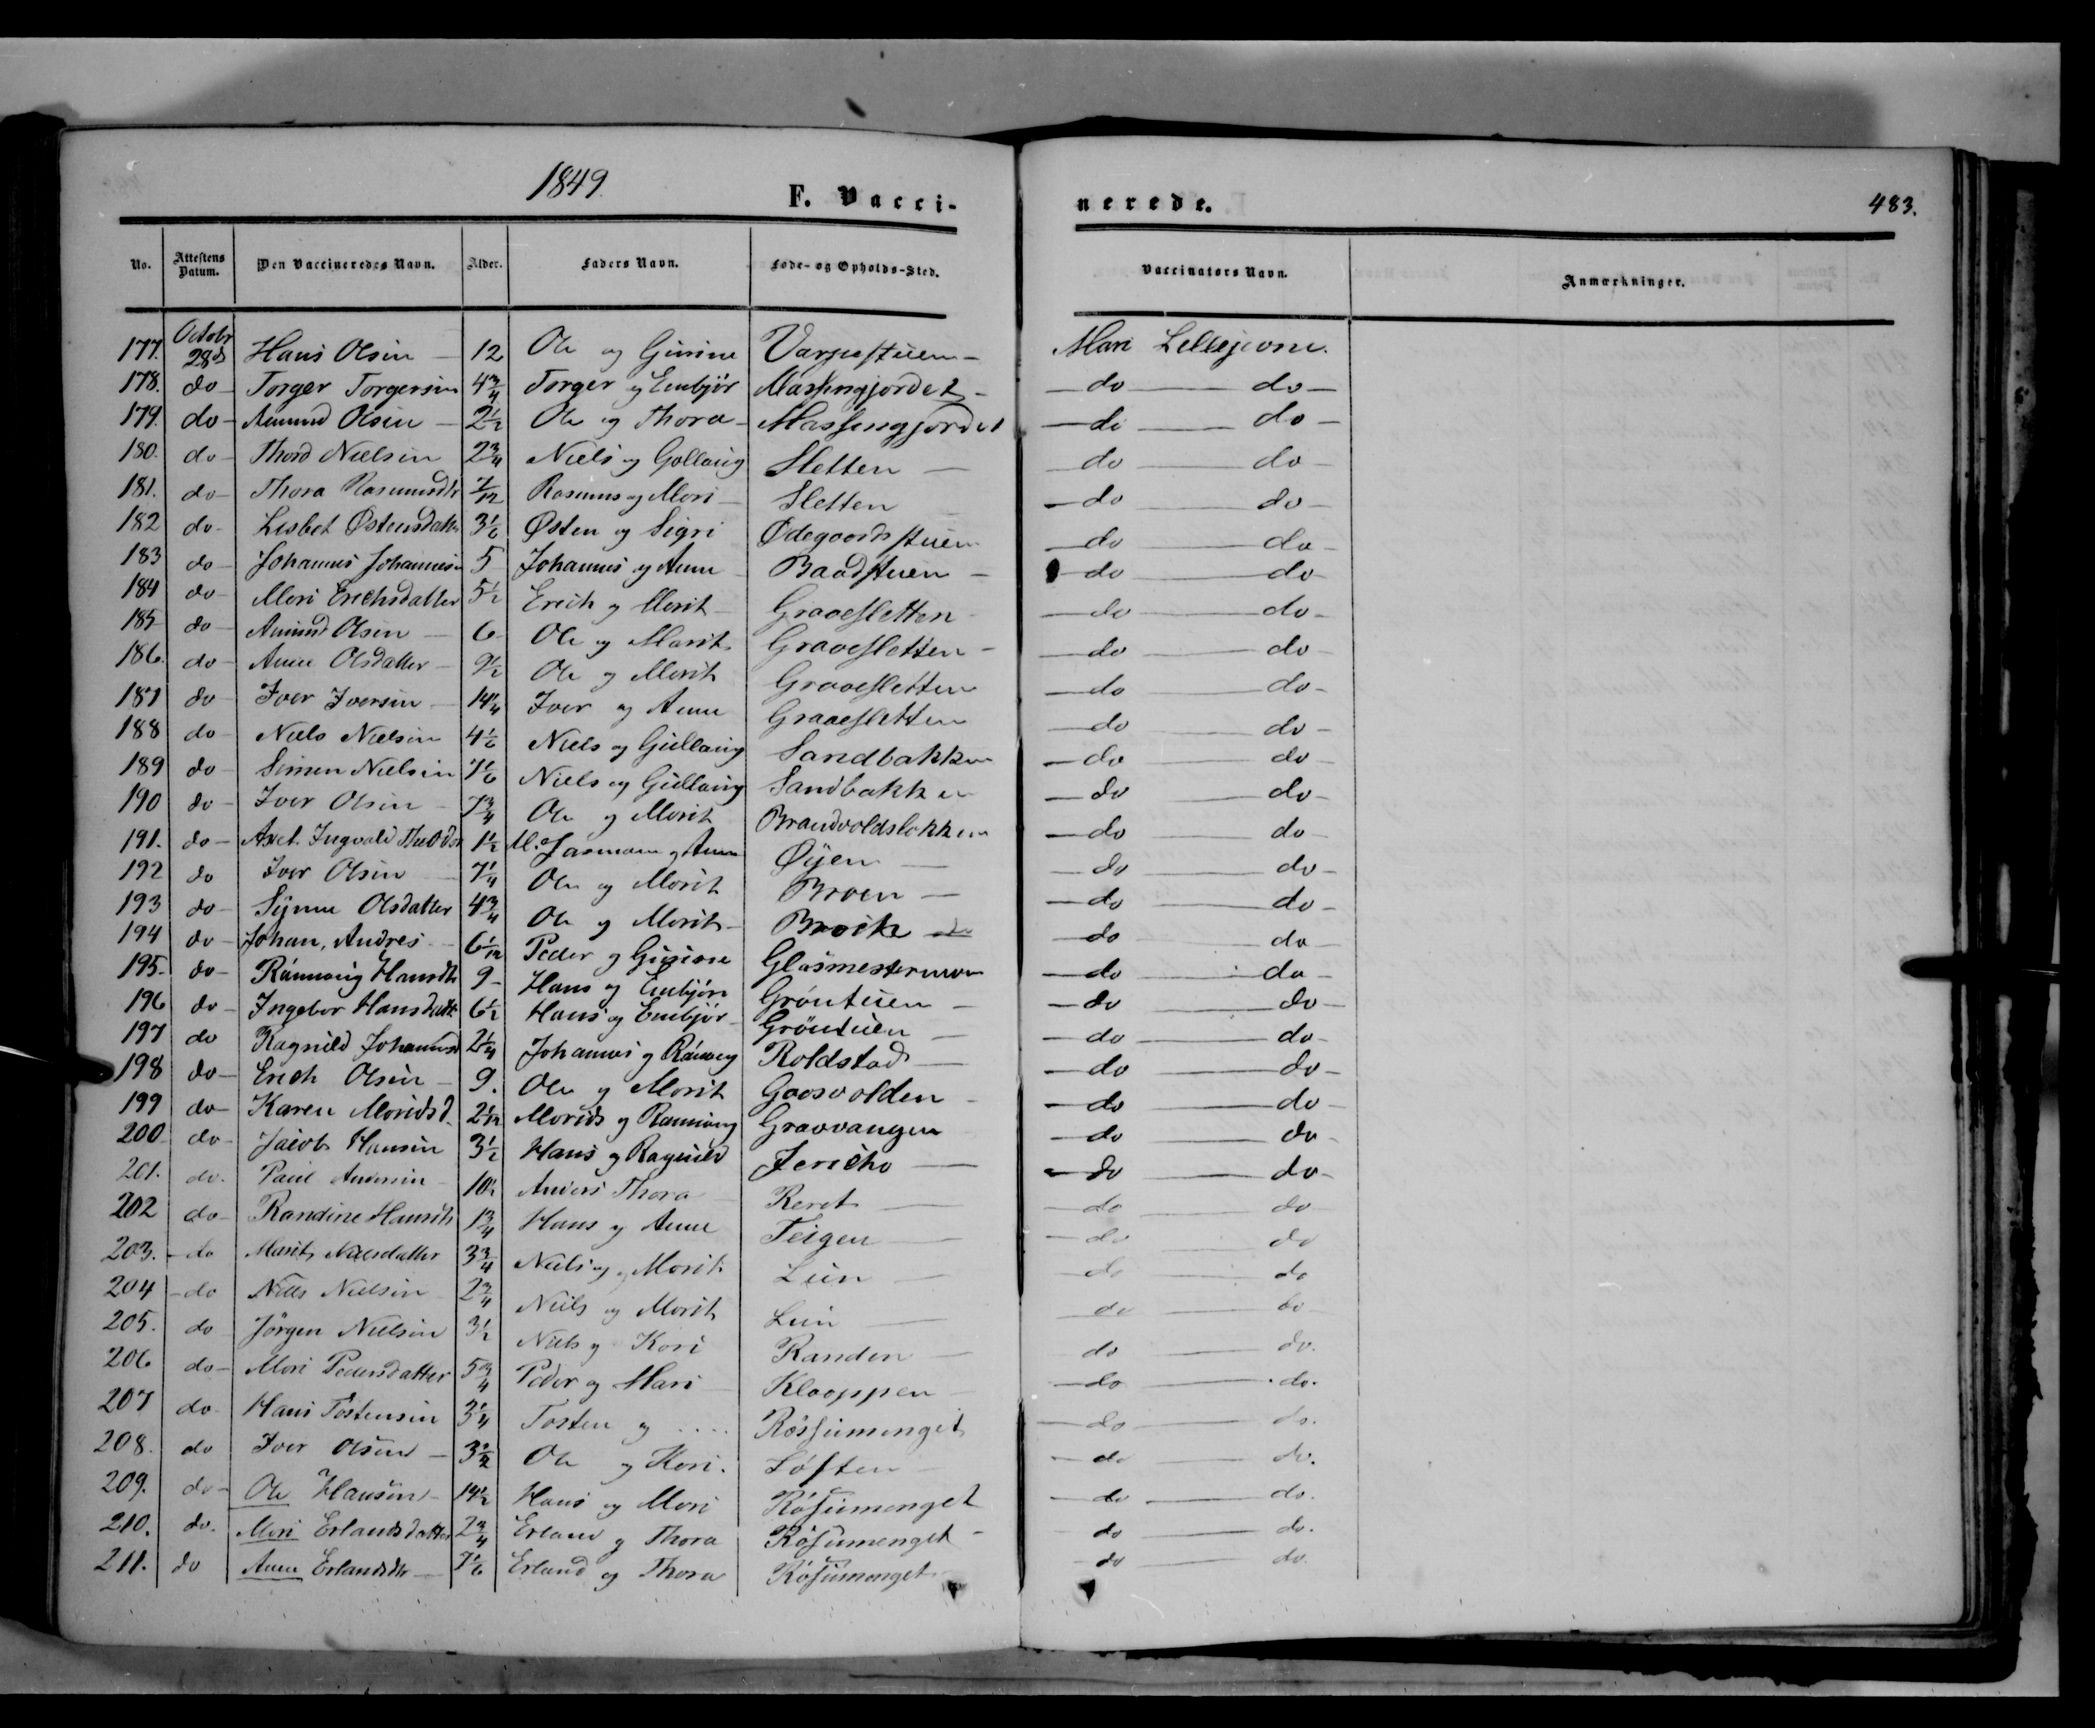 1849.
F. Vacci-
nerede.
483.
No. Attestens Datum. Den Vaccineredes Navn. Alder. Faders Navn. Føde- og Opholds-Sted. Vaccinators Navn. Anmærkninger.
177. Octobr 28de Hans Olsen 12 Ole og Gurine Mari
178. do Torger Torgersen 4 3/4 Torger og Embjør Massingjordet do do
179. do Amund Olsen 2 1/2 Ole og Thora Massingjordet do do
180. do Thord Nielsen 2 3/4 Niels og Gollaug Sletten do do
181. do Thora Rasmusdtr 7/12 Rasmus og Mari Sletten do do
182 do Lisbet Østensdatter 3 1/6 Østen og Sigri Ødegaardsstuen do do
183 do Johannes Johannesen 5 Johannes og Anne Baadstuen do do
184 do Mari Erichsdatter 5 1/2 Erich og Marit Graaesletten do do
185 do Amund Olsen 6 Ole og Marit Graaesletten do do
186. do Anne Olsdatter 9 1/2 Ole og Marit Graaesletten do do
187 do Iver Iversen 14 1/4 Iver og Anne Graaesletten do do
188 do Niels Nielsen 4 1/6 Niels og Gullaug Sandbakken do do
189 do Simen Nielsen 7 1/6 Niels og Gullaug Sandbakken do do
190 do Iver Olsen 7 3/4 Ole og Marit Brandvoldslokken do do
191. do Axel Ingvald 1 1/2 M. og Anne Øyen do do
192 do Iver Olsen 7 1/4 Ole og Marit Broen do do
193 do Synne Olsdatter 4 3/4 Ole og Marit do do
194 do Johan, Andres 6 1/12 Peder og Gurine Glasmestermoen do do
195. do Rannveig Hansdtr 9 Hans og Embjør Grøntuen do do
196 do Ingebor Hansdatter 6 1/2 Hans og Embjør Grøntuen do do
197 do Ragnild Johannesd 2 1/4 Johannes og Rannveig Roldstad do do
198 do Erich Olsen 9. Ole og Marit Gaasvolden do do
199 do Karen Moridsd. 2 1/12 Morids og Rannveig Graavangen do do
200 do Jacob Hansen 3 1/2 Hans og Ragnild Jericho do do
201. do. Paul Andersen 10 1/2 Anders Thora Reret do do
202 do Randine Hansdtr 1 3/4 Hans og Anne Teigen do do
203. do Marit Nielsdatter 3 3/4 Niels og Marit Lien do do
204 do Niels Nielsen 2 3/4 Niels og Marit Lien do do
205. do Jørgen Nielsen 3 1/2 Niels og Kari Randen do do.
206 do Mari Pedersdatter 5 3/4 Peder og Mari Klaappen do do.
207 do Hans Tostensen 3 1/4 Tosten og .... Røssumenget do do.
208. do Iver Olsen 3 1/2 Ole og Kari. Løften do do.
209. do Ole Hansen 14 1/2 Hans og Mari Røsumenget do do.
210. do. Mari Erlandsdatter 2 3/4 Erland og Thora Røsumenget do do.
211. do Anne Erlandsdtr 7 1/6 Erland og Thora Røsumenget do do.